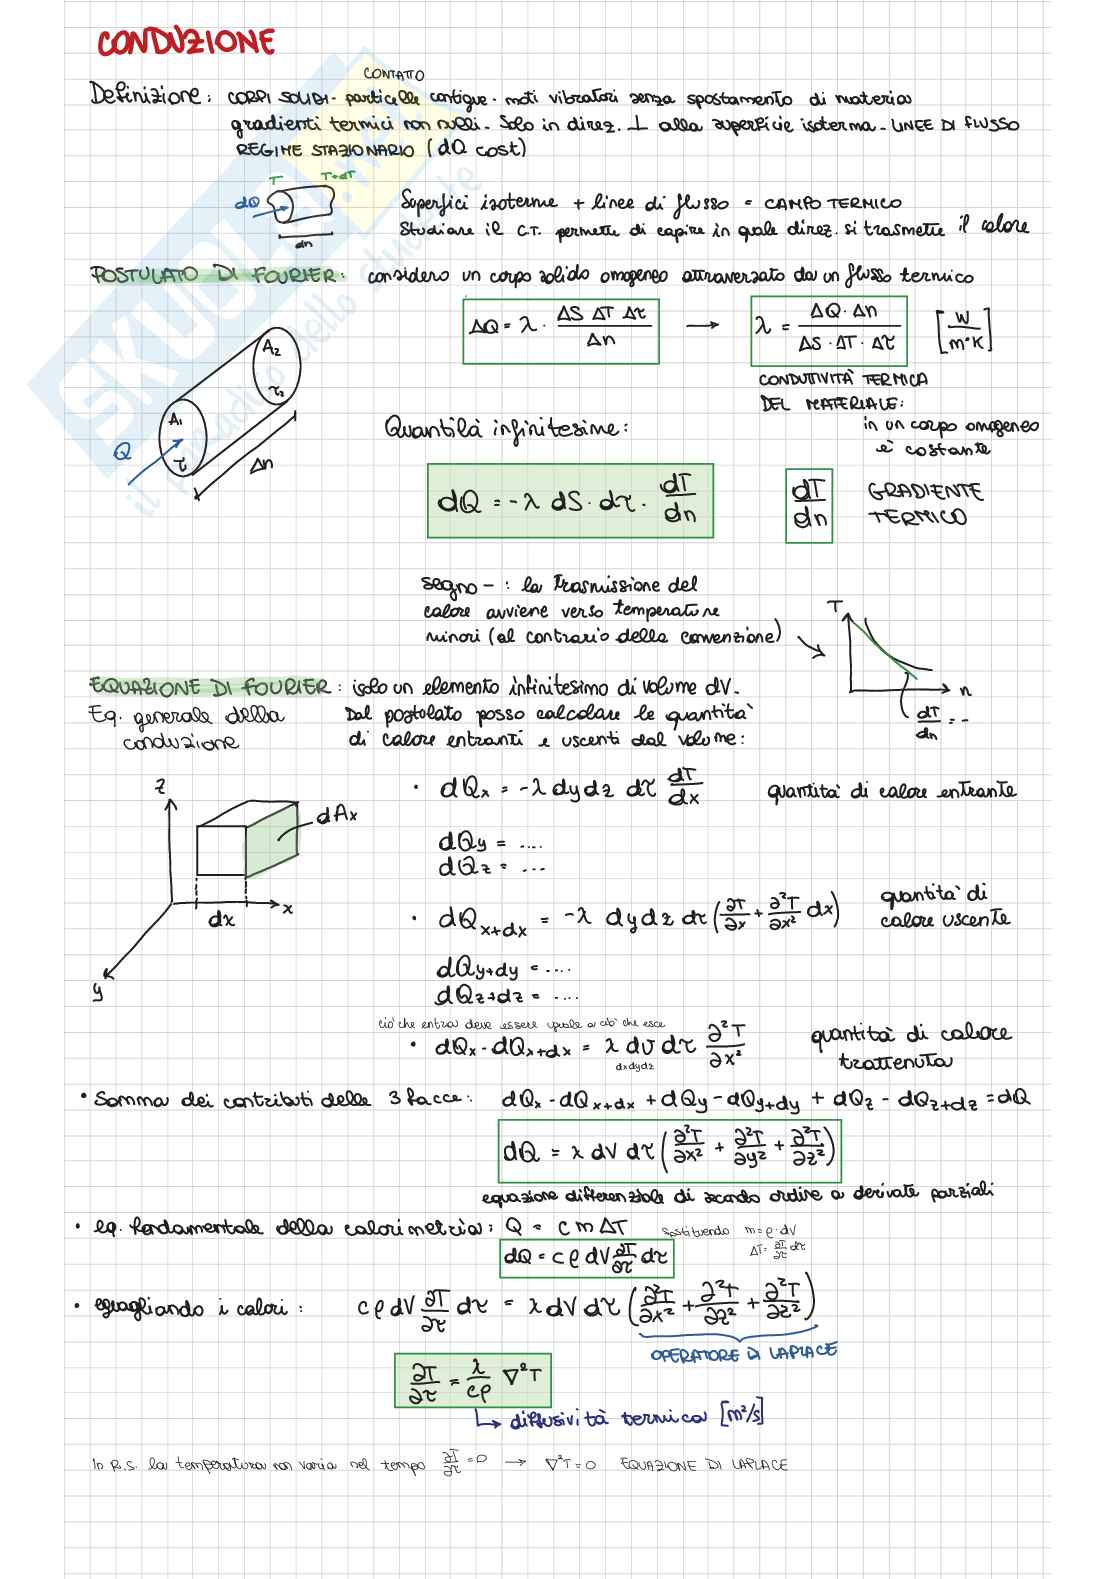 CONDUZIONE
CONTATTO
Definizione: CORPI SOLIDI - particelle contigue - moti vibratori senza spostamento di materia
gradienti termici non nulli - Solo in direz. ⊥ alla superficie isoterma - LINEE DI FLUSSO
REGIME STAZIONARIO (dQ cost)
T T+dT
dQ
dn
Superfici isoterme + linee di flusso = CAMPO TERMICO
Studiare il C.T. permette di capire in quale direz. si trasmette il calore
POSTULATO DI FOURIER: considero un corpo solido omogeneo attraversato da un flusso termico
ΔQ = λ · ΔS ΔT Δτ / Δn → λ = ΔQ · Δn / ΔS · ΔT · Δτ [W / m·K]
CONDUTTIVITÀ TERMICA
DEL MATERIALE:
in un corpo omogeneo
è costante
A₂
τ₂
A₁
τ
Q
Δn
Quantità infinitesime:
dQ = -λ dS · dτ · dT/dn
dT/dn GRADIENTE
TERMICO
segno - : la trasmissione del
calore avviene verso temperature
minori (al contrario della convenzione)
T
n
dT/dn = -
EQUAZIONE DI FOURIER: isolo un elemento infinitesimo di volume dV.
Eq. generale della
conduzione
Dal postulato posso calcolare le quantità
di calore entranti e uscenti dal volume:
z
dAx
x
dx
y
· dQx = -λ dydz dτ dT/dx quantità di calore entrante
dQy = ....
dQz = ....
· dQx+dx = -λ dydz dτ (∂T/∂x + ∂²T/∂x² dx) quantità di
calore uscente
dQy+dy = ....
dQz+dz = ....
ciò che entra deve essere uguale a ciò che esce
· dQx - dQx+dx = λ dv dτ ∂²T/∂x² quantità di calore
trattenuta
dxdydz
· Somma dei contributi delle 3 facce: dQx - dQx+dx + dQy - dQy+dy + dQz - dQz+dz = dQ
dQ = λ dV dτ (∂²T/∂x² + ∂²T/∂y² + ∂²T/∂z²)
equazione differenziale di secondo ordine a derivate parziali
· eq. fondamentale della calorimetria: Q = c m ΔT sostituendo m = ρ · dV
ΔT = ∂T/∂τ dτ
dQ = c ρ dV ∂T/∂τ dτ
· eguagliando i calori: cρ dV ∂T/∂τ dτ = λ dV dτ (∂²T/∂x² + ∂²T/∂z² + ∂²T/∂z²)
OPERATORE DI LAPLACE
∂T/∂τ = λ/cρ ∇²T
diffusività termica [m²/s]
In R.S. la temperatura non varia nel tempo ∂T/∂τ = 0 → ∇²T = 0 EQUAZIONE DI LAPLACE